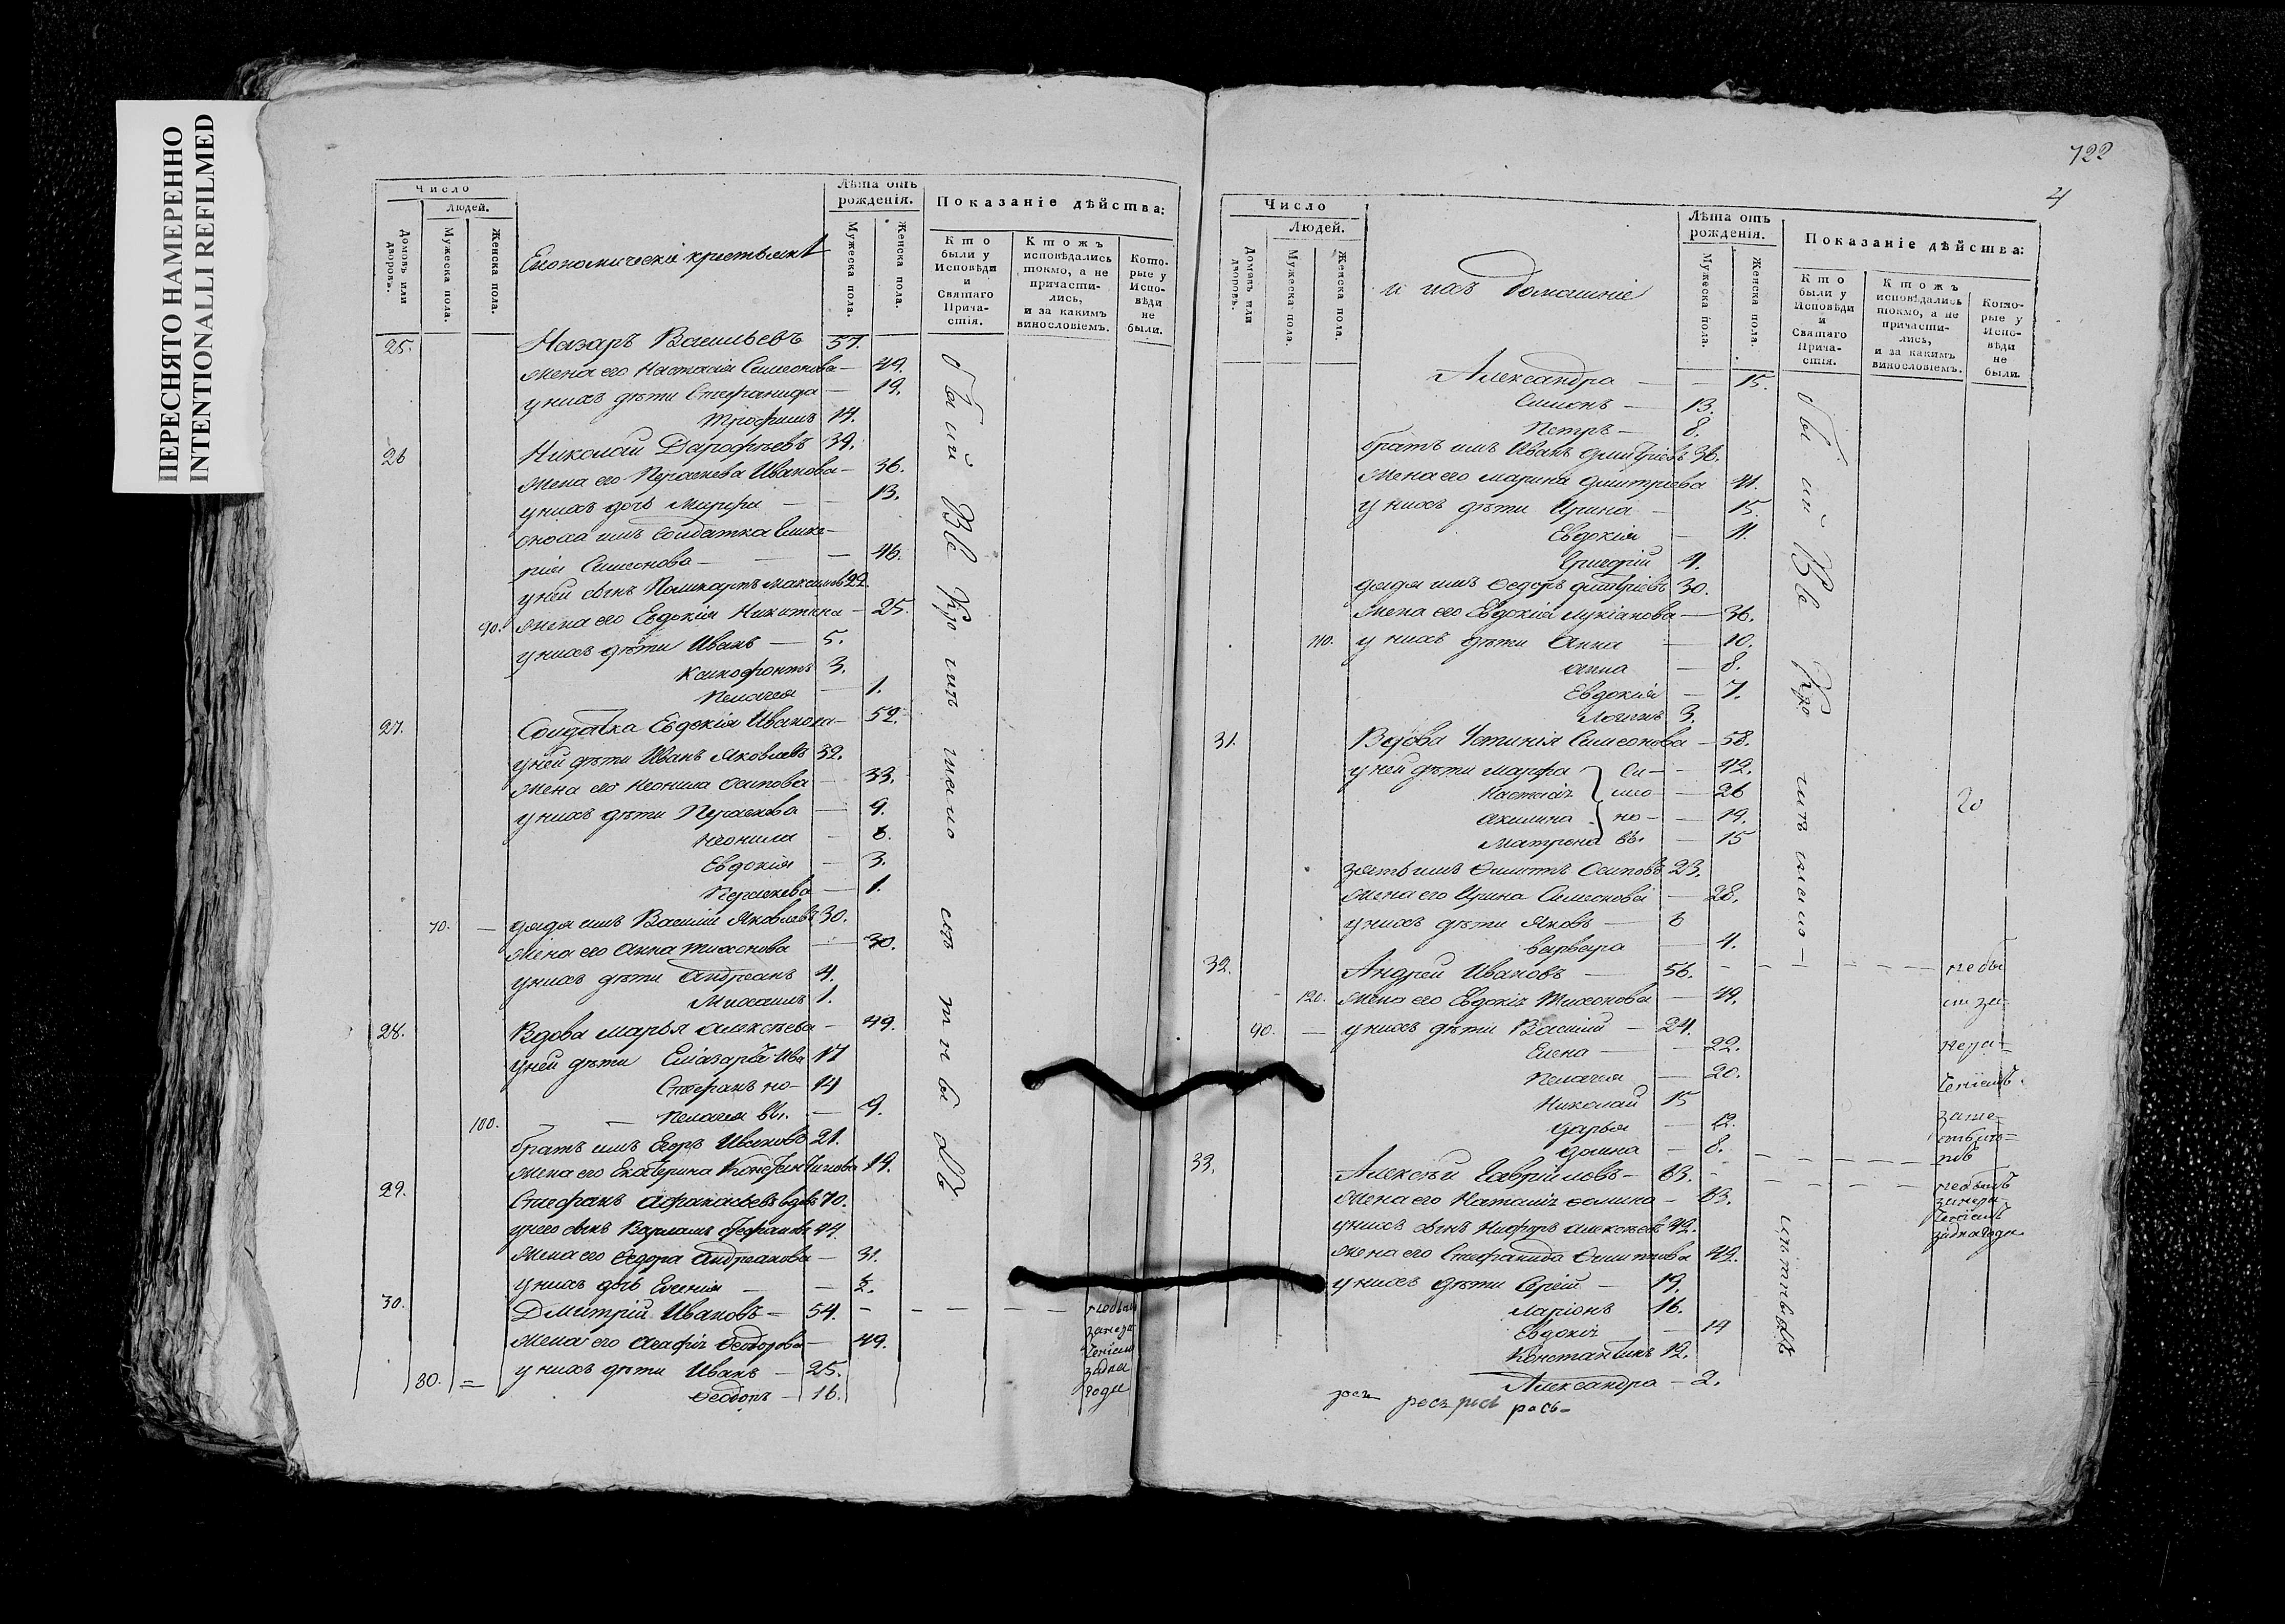 ПЕРЕСНЯТО НАМЕРЕННО
INTENTIONALLI REFILMED
Число
Людей.
Домовъ или дворовъ.
Мужеска пола.
Женска пола.
Економическія крестьяне
Лѣта отъ рожденія.
Мужеска пола.
Женска пола.
Показаніе дѣйства:
Кто были у Исповѣди и Святаго Причастія.
Ктожъ исповѣдались токмо, а не причастились, и за какимъ винословіемъ.
Которые у Исповѣди не были.
25. Назаръ Васильевъ 57.
жена его Настасія Симеонова — 49.
у нихъ дѣти Стефанида — 19.
Трофимъ 14.
26 Николай Дарофѣевъ 39.
жена его Пераскева Иванова — 36.
у нихъ дочь Марфа — 13.
сноха имъ солдатка
Симеонова — 46.
у ней сынъ 22
90. жена его Евдокія Никитина — 25.
у нихъ дѣти Иванъ — 5.
Ксенофонтъ 3.
Пелагея — 1.
27. Солдатка Евдокія Иванова — 52.
у ней дѣти Иванъ Яковлевъ 32.
жена его Неонила Осипова — 33.
у нихъ дѣти Пераскева — 9.
Неонила — 6.
Евдокія — 3.
Пераскева — 1.
70. — дядя имъ Василій Яковлевъ 30.
жена его Анна Тихонова — 30.
у нихъ дѣти Андреанъ 4.
Михаилъ 1.
28. Вдова Марья Алексѣева — 49.
у ней дѣти Елиазаръ Ива 17
Стефанъ но — 14
100. — Пелагея вы. — 9.
братъ имъ Егоръ Ивановъ 21.
жена его Екатерина Константинова 19.
29. Стефанъ Афанасьевъ вдовъ 70.
у него сынъ Варламъ Стефановъ 44.
жена его Федора Андреанова — 31.
у нихъ дочь Евгенія — ½.
30. Дмитрий Ивановъ — 54. — — — —
жена его Агафія Феодорова — 49.
80. = у нихъ дѣти Иванъ — 25.
Феодоръ — 16.
722
4
Число
Людей.
Домовъ или дворовъ.
Мужеска пола.
Женска пола.
и ихъ домашніе
Лѣта отъ рожденія.
Мужеска пола.
Женска пола.
Показаніе дѣйства:
Кто были у Исповѣди и Святаго Причастія.
Ктожъ исповѣдались токмо, а не причастились, и за какимъ винословіемъ.
Которые у Исповѣди не были.
Александра — — 15.
Симонъ — 13.
Петръ — 8.
братъ имъ Иванъ Дмитріевъ 36.
жена его Марина Дмитріева 41.
у нихъ дѣти Ирина — 15.
Евдокія — 11.
Григорій 4.
дядя имъ Федоръ Дмитріевъ 30.
жена его Евдокія Лукіанова — 36.
110. у нихъ дѣти Анна — 10.
Анна — 8.
Евдокія — 7.
Логинъ 3.
31. Вдова Устинія Симеонова — 58.
у ней дѣти Марфа Си — 42.
Настасія мео — 26
Акилина но — 19.
Матрона вы. — 15
зять имъ Филиппъ Осиповъ 23.
жена его Ирина Симеонова — 28.
у нихъ дѣти Яковъ — 6
Варвара — 4.
32. Андрей Ивановъ — 56. — — — — — небы
120. жена его Евдокія Тихонова — 49.
90. — у нихъ дѣти Василій — 24.
Елена — 22.
Пелагея — 20.
Николай 15
Дарья — 12.
Домна — 8.
33. Алексѣй Гавриловъ — 63.
жена его Наталія — 63.
у нихъ сынъ Алексѣевъ 42.
жена его Стефанида Филиппова 42.
у нихъ дѣти Сергій — 19.
Ларіонъ 16.
Евдокія — 14
Константинъ 12.
Александра — 2.
рось-